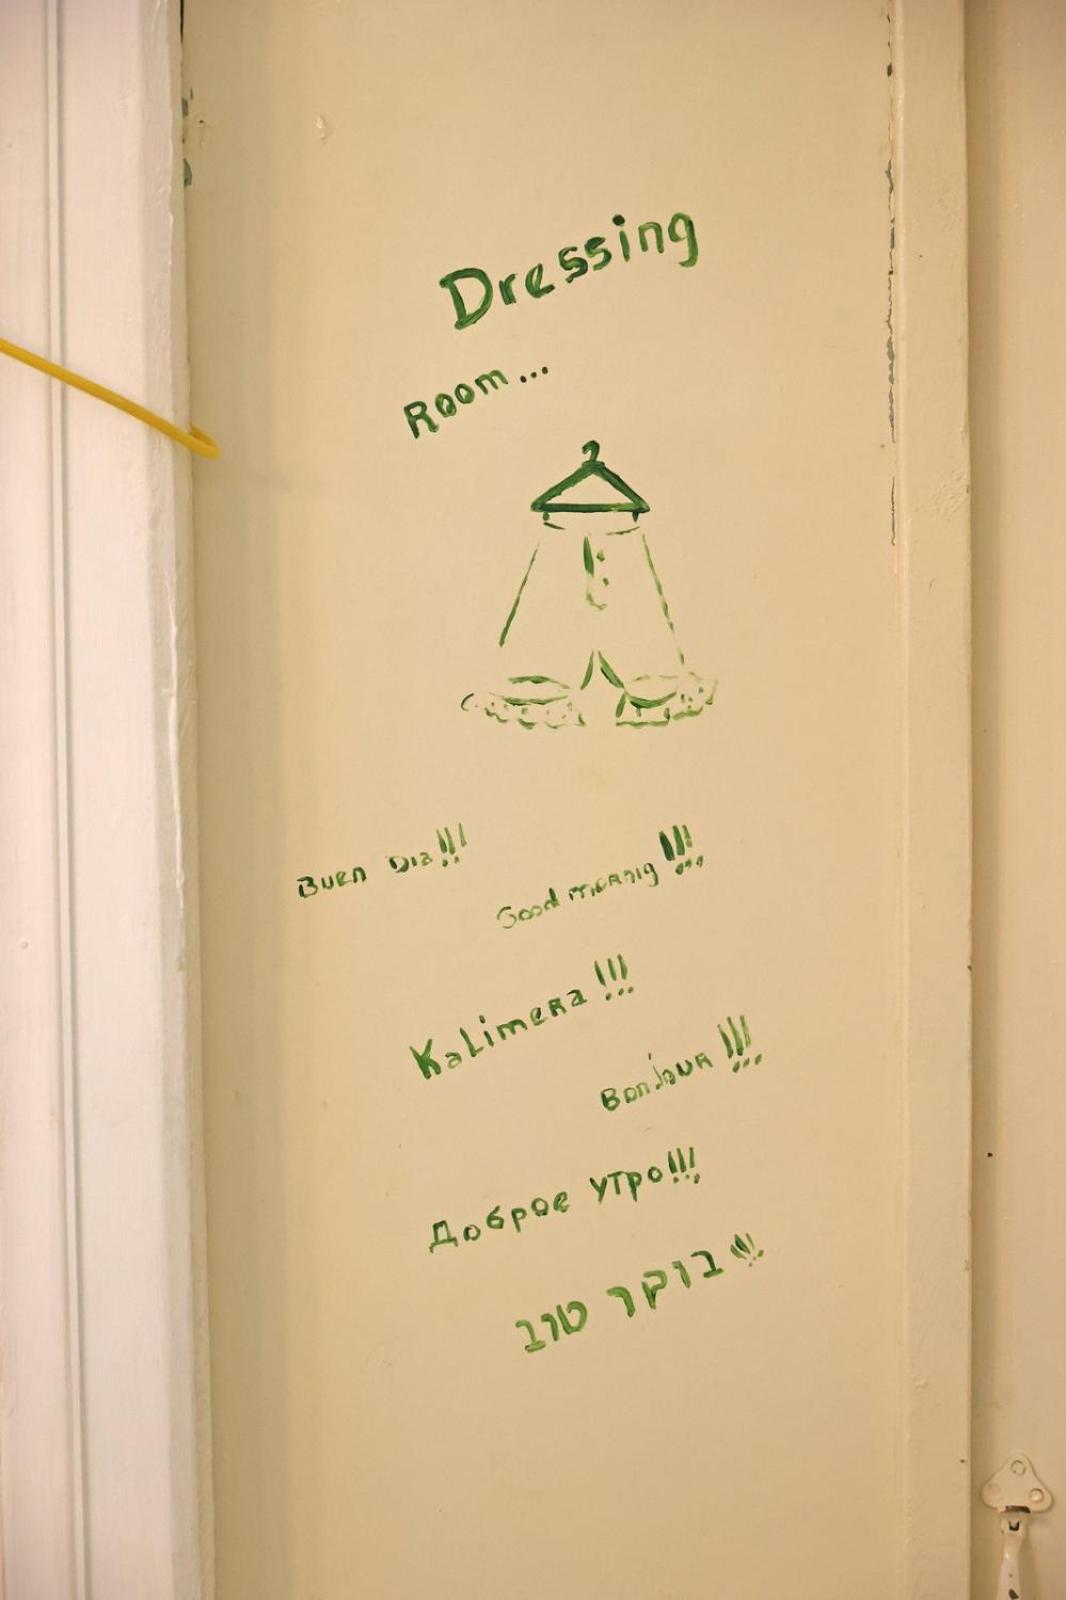 Dressing
Room...
Buen Dia!!!
Good mornig!!!
Kalimera!!!
Bonjour!!!
Доброе утро!!!
בוקר טוב!!!